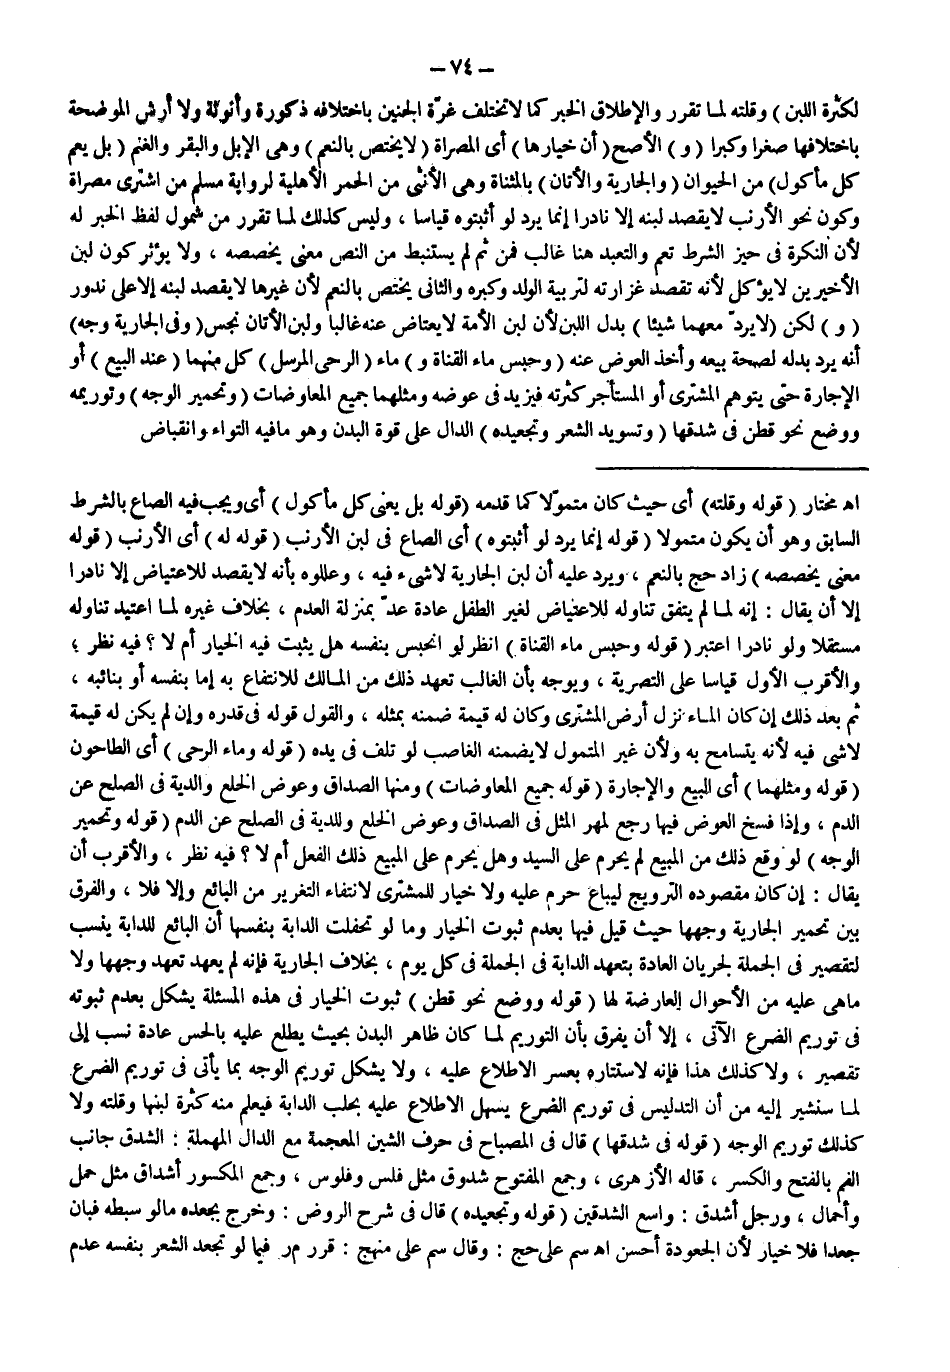 — ٧٤ —
لكثرة اللبن ) وقلته لما تقرر والإطلاق الخبر كما لاتختلف غرّة الجنين باختلافه ذكورة وأنوثة ولا أرش الموضحة
باختلافها صغرا وكبرا ( و ) الأصح ( أن خيارها ) أى المصراة ( لايختص بالنعم ) وهى الإبل والبقر والغنم ( بل يعم
كل مأكول) من الحيوان ( والجارية والأتان ) بالمثناة وهى الأنثى من الحمر الأهلية لرواية مسلم من اشترى مصراة
وكون نحو الأرنب لايقصد لبنه إلا نادرا إنما يرد لو أثبتوه قياسا ، وليس كذلك لما تقرر من شمول لفظ الخبر له
لأن النكرة فى حيز الشرط تعم والتعبد هنا غالب فمن ثم لم يستنبط من النص معنى يخصصه ، ولا يؤثر كون لبن
الأخيرين لايؤكل لأنه تقصد غزارته لتربية الولد وكبره والثانى يختص بالنعم لأن غيرها لايقصد لبنه إلاعلى ندور
( و ) لكن (لايردّ معهما شيئا ) بدل اللبن لأن لبن الأمة لايعتاض عنه غالبا ولبن الأتان نجس ( وفى الجارية وجه)
أنه يرد بدله لصحة بيعه وأخذ العوض عنه ( وحبس ماء القناة و ) ماء ( الرحى المرسل ) كل منهما ( عند البيع ) أو
الإجارة حتى يتوهم المشترى أو المستأجر كثرته فيزيد فى عوضه ومثلهما جميع المعاوضات ( وتحمير الوجه ) وتوريمه
ووضع نحو قطن فى شدقها ( وتسويد الشعر وتجعيده ) الدال على قوة البدن وهو مافيه التواء وانقباض
اه مختار ( قوله وقلته) أى حيث كان متمولا كما قدمه (قوله بل يعنى كل مأكول ) أى ويجب فيه الصاع بالشرط
السابق وهو أن يكون متمولا ( قوله إنما يرد لو أثبتوه ) أى الصاع فى لبن الأرنب ( قوله له ) أى الأرنب ( قوله
معنى يخصصه ) زاد حج بالنعم ، ويرد عليه أن لبن الجارية لاشىء فيه ، وعللوه بأنه لايقصد للاعتياض إلا نادرا
إلا أن يقال : إنه لما لم يتفق تناوله للاعتياض لغير الطفل عادة عدّ بمنزلة العدم ، بخلاف غيره لما اعتيد تناوله
مستقلا ولو نادرا اعتبر ( قوله وحبس ماء القناة ) انظر لو انحبس بنفسه هل يثبت فيه الخيار أم لا ؟ فيه نظر ؛
والأقرب الأول قياسا على التصرية ، ويوجه بأن الغالب تعهد ذلك من المالك للانتفاع به إما بنفسه أو بنائبه ،
ثم بعد ذلك إن كان الماء نزل أرض المشترى وكان له قيمة ضمنه بمثله ، والقول قوله فى قدره وإن لم يكن له قيمة
لاشى فيه لأنه يتسامح به ولأن غير المتمول لايضمنه الغاصب لو تلف فى يده ( قوله وماء الرحى ) أى الطاحون
( قوله ومثلهما ) أى البيع والإجارة ( قوله جميع المعاوضات ) ومنها الصداق وعوض الخلع والدية فى الصلح عن
الدم ، وإذا فسخ العوض فيها رجع لمهر المثل فى الصداق وعوض الخلع وللدية فى الصلح عن الدم ( قوله وتحمير
الوجه ) لو وقع ذلك من المبيع لم يحرم على السيد وهل يحرم على المبيع ذلك الفعل أم لا ؟ فيه نظر ، والأقرب أن
يقال : إن كان مقصوده الترويج ليباع حرم عليه ولا خيار للمشترى لانتفاء التغرير من البائع وإلا فلا ، والفرق
بين تحمير الجارية وجهها حيث قيل فيها بعدم ثبوت الخيار وما لو تحفلت الدابة بنفسها أن البائع للدابة ينسب
لتقصير فى الجملة لجريان العادة بتعهد الدابة فى الجملة فى كل يوم ، بخلاف الجارية فإنه لم يعهد تعهد وجهها ولا
ماهى عليه من الأحوال العارضة لها ( قوله ووضع نحو قطن ) ثبوت الخيار فى هذه المسئلة يشكل بعدم ثبوته
فى توريم الضرع الآتى ، إلا أن يفرق بأن التوريم لما كان ظاهر البدن بحيث يطلع عليه بالحس عادة نسب إلى
تقصير ، ولا كذلك هذا فإنه لاستتاره يعسر الاطلاع عليه ، ولا يشكل توريم الوجه بما يأتى فى توريم الضرع
لما سنشير إليه من أن التدليس فى توريم الضرع يسهل الاطلاع عليه بحلب الدابة فيعلم منه كثرة لبنها وقلته ولا
كذلك توريم الوجه ( قوله فى شدقها ) قال فى المصباح فى حرف الشين المعجمة مع الدال المهملة : الشدق جانب
الفم بالفتح والكسر ، قاله الأزهرى ، وجمع المفتوح شدوق مثل فلس وفلوس ، وجمع المكسور أشداق مثل حمل
وأحمال ، ورجل أشدق : واسع الشدقين ( قوله وتجعيده ) قال فى شرح الروض : وخرج بجعده مالو سبطه فبان
جعدا فلا خيار لأن الجعودة أحسن اه سم على حج : وقال سم على منهج : قرر مر فيما لو تجعد الشعر بنفسه عدم